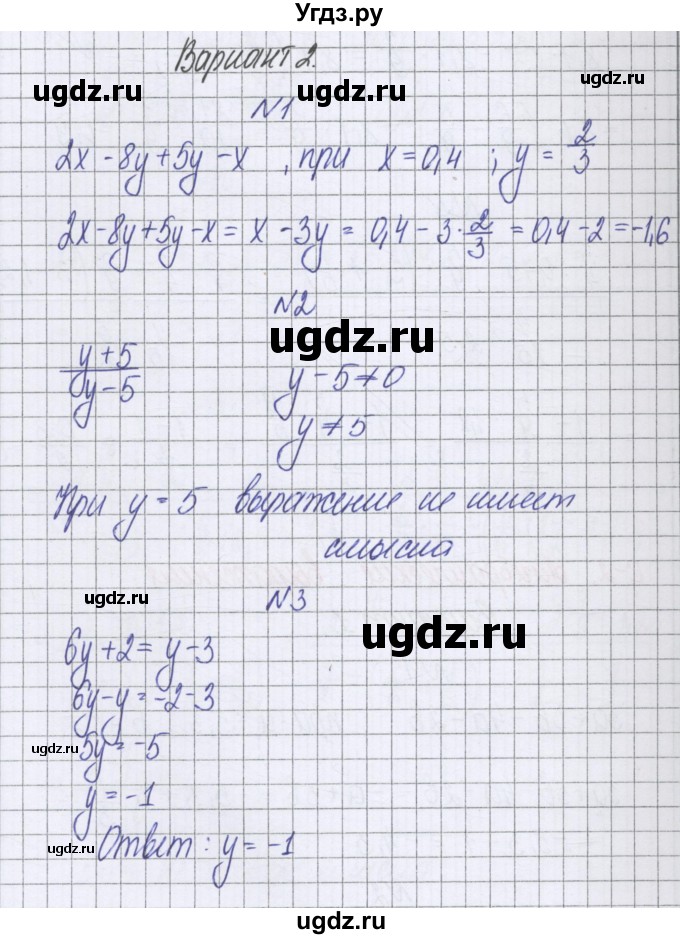 Угдз.ру
Вариант 2.
ugdz.ru ugdz.ru
N1
2x - 8y + 5y - x , при x = 0,4 ; y = 2/3
2x - 8y + 5y - x = x - 3y = 0,4 - 3 · 2/3 = 0,4 - 2 = -1,6
N2
ugdz.ru
y + 5 / y - 5
y - 5 ≠ 0
y ≠ 5
При y = 5 выражение не имеет
смысла
ugdz.ru
N3
ugdz.ru
6y + 2 = y - 3
6y - y = -2 - 3
ugdz.ru
5y = -5
y = -1
ugdz.ru
Ответ : y = -1
ugdz.ru